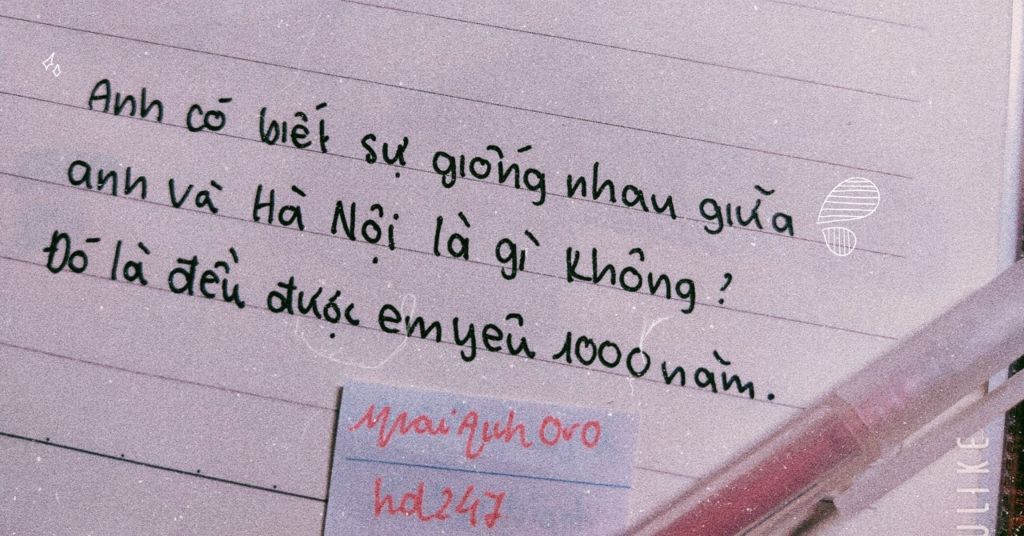 Anh có biết sự giống nhau giữa
anh và Hà Nội là gì không?
Đó là đều được em yêu 1000 năm.
MaiAnh0v0
hd247
ULIKE